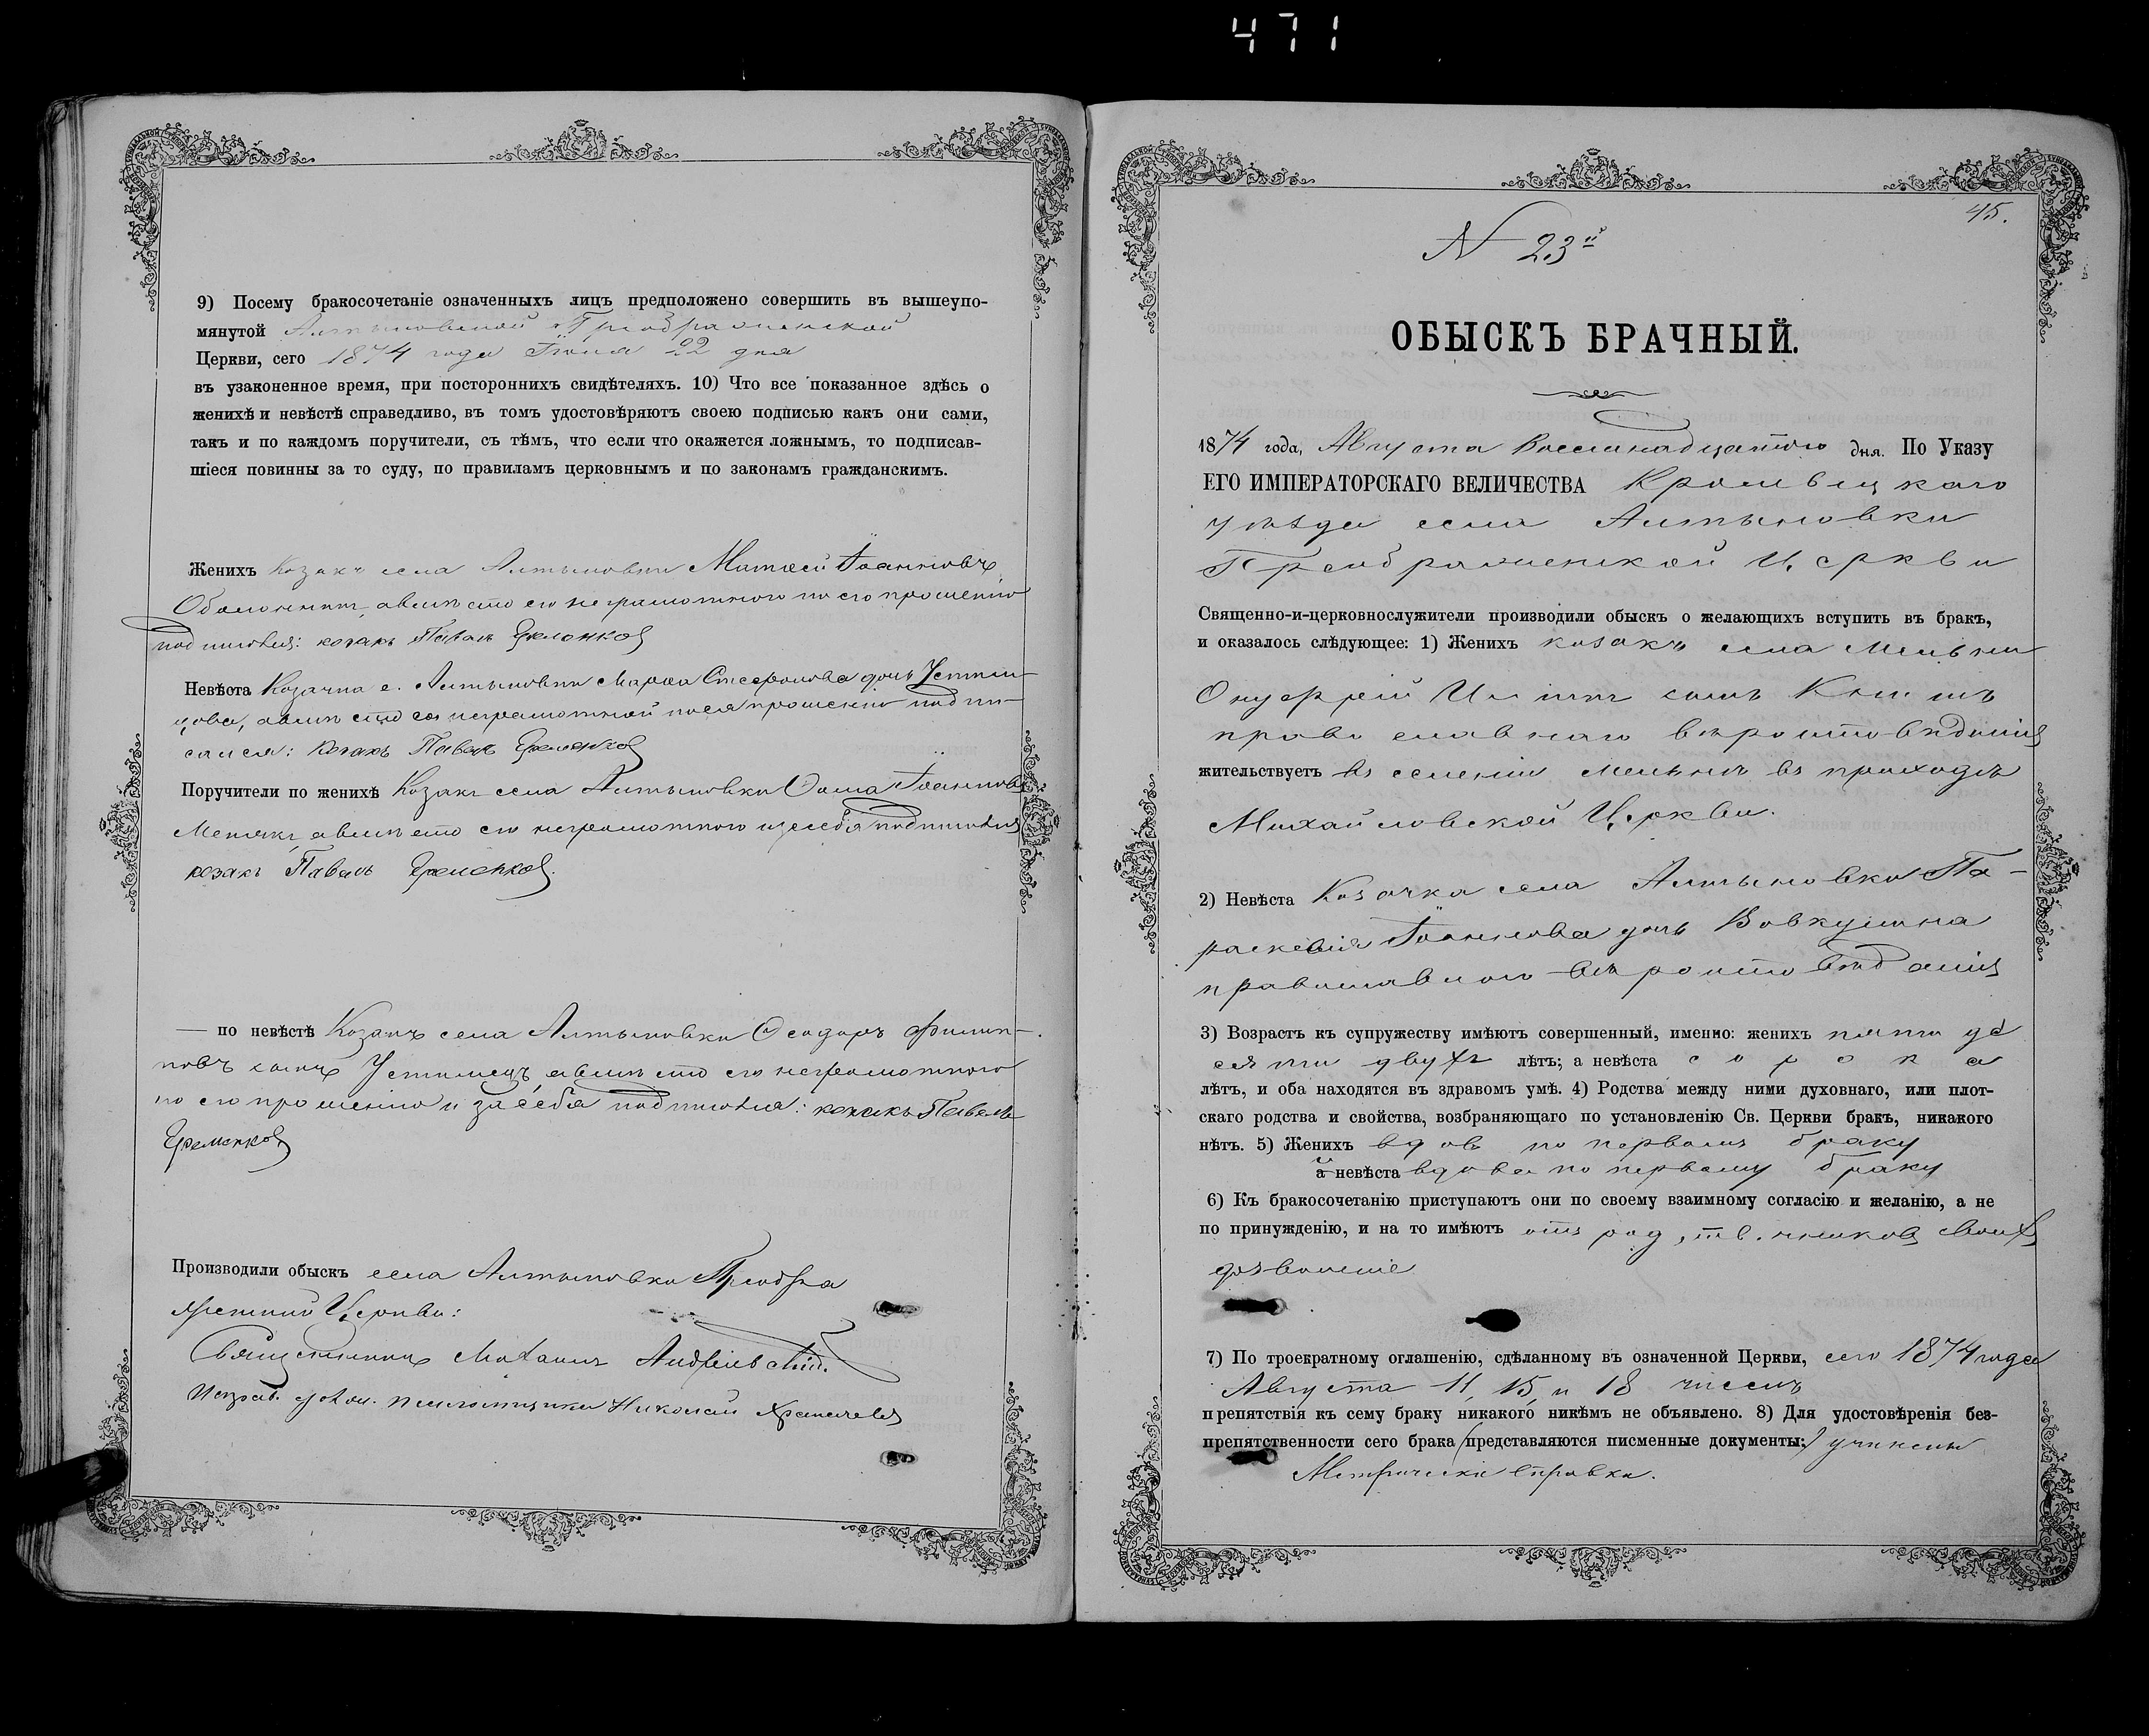 471
9) Посему бракосочетаніе означенныхъ лицъ предположено совершить въ вышеупо-
мянутой Алтыновской Преображенской
Церкви, сего 1874 года Іюня 22 дня
въ узаконенное время, при постороннихъ свидѣтеляхъ. 10) Что все показанное здѣсь о
женихѣ и невѣстѣ справедливо, въ томъ удостовѣряютъ своею подписью какъ они сами,
такъ и по каждомъ поручители, съ тѣмъ, что если что окажется ложнымъ, то подписав-
шіеся повинны за то суду, по правиламъ церковнымъ и по законамъ гражданскимъ.
Женихъ Козакъ села Алтыновки Матѳей Іоанновъ
а вмѣсто его неграмотного по его прошенію
подписался: козакъ Павелъ Еременковъ
Невѣста Козачка с. Алтыновки Марѳа Стефанова дочь Устим-
цова, а вмѣсто ея неграмотной по ея прошенію подпи-
сался: козакъ Павелъ Еременковъ
Поручители по женихѣ Козакъ села Алтыновки Ѳома Іоанновъ
а вмѣсто его неграмотного и за себя подписался
козакъ Павелъ Еременковъ.
— по невѣстѣ Козакъ села Алтыновки Ѳеодоръ Филип-
повъ сынъ Устимецъ, а вмѣсто его неграмотного
по его прошенію и за себя подписался: козакъ Павелъ
Еременковъ
Производили обыскъ села Алтыновки Преобра
женской Церкви:
Священникъ Михаилъ Андріевскій.
Николай
45.
N 23й
ОБЫСКЪ БРАЧНЫЙ.
1874 года, Августа восемнадцатого дня. По Указу
ЕГО ИМПЕРАТОРСКАГО ВЕЛИЧЕСТВА Кролевецкаго
уѣзда села Алтыновки
Преображенской Церкви
Священно-и-церковнослужители производили обыскъ о желающихъ вступить въ бракъ,
и оказалось слѣдующее: 1) Женихъ козакъ села Мельни
Онуфрій сынъ
православнаго вѣроисповѣданія
жительствуетъ въ селеніи Мельнѣ въ приходѣ
Михайловской Церкви.
2) Невѣста Козачка села Алтыновки Па-
раскевія Іоаннова дочь Вовкушина
православного вѣроисповѣданія
3) Возрастъ къ супружеству имѣютъ совершенный, именно: женихъ пятиде
сяти двухъ лѣтъ; а невѣста сорока
лѣтъ, и оба находятся въ здравомъ умѣ. 4) Родства между ними духовнаго, или плот-
скаго родства и свойства, возбраняющаго по установленію Св. Церкви бракъ, никакого
нѣтъ. 5) Женихъ вдовъ по первомъ браку
а невѣста вдова по первому браку
6) Къ бракосочетанію приступаютъ они по своему взаимному согласію и желанію, а не
по принужденію, и на то имѣютъ отъ родственниковъ своихъ
дозволеніе
7) По троекратному оглашенію, сдѣланному въ означенной Церкви, сего 1874 года
Августа 11, 15 и 18 числъ
препятствія къ сему браку никакого никѣмъ не объявлено. 8) Для удостовѣренія без-
препятственности сего брака (представляются писменные документы:)
справка.